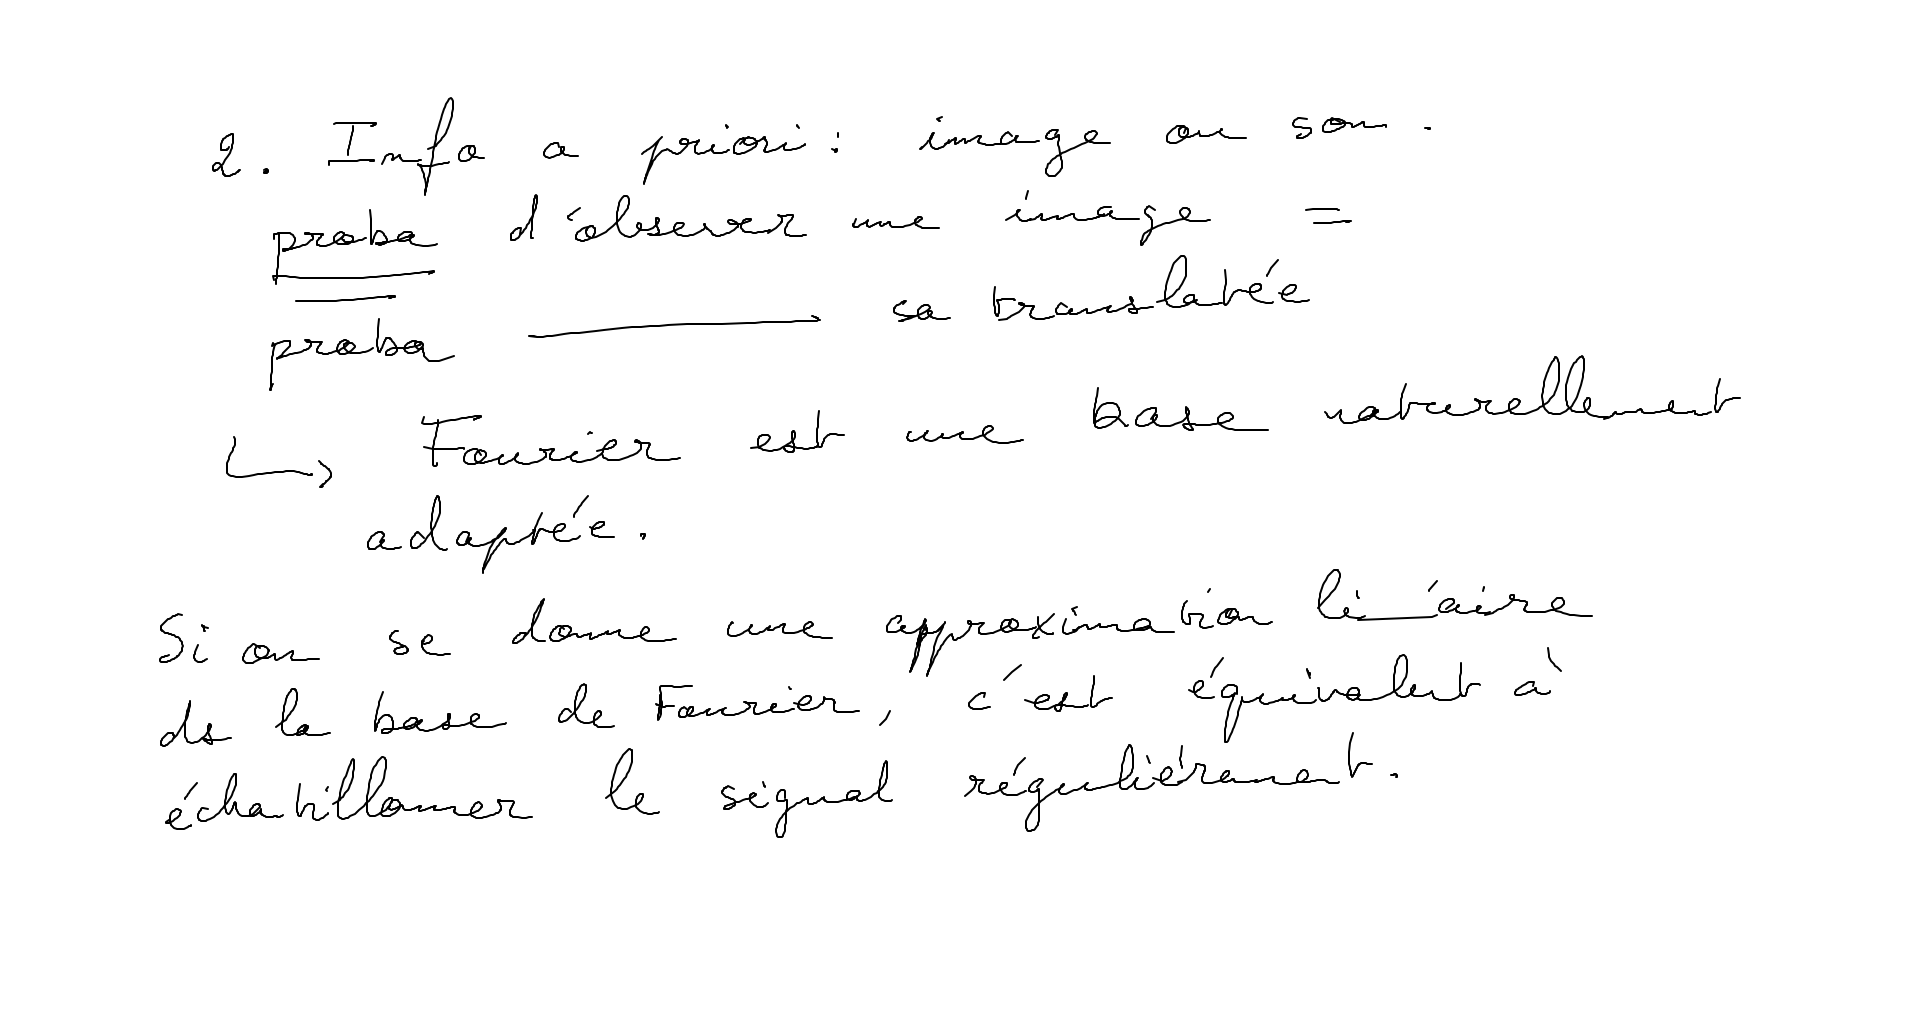 2. Info a priori : image ou son.
proba d'observer une image =
proba ———— sa translatée
↳ Fourier est une base naturellement
adaptée.
Si on se donne une approximation linéaire
ds la base de Fourier, c'est équivalent à
échantillonner le signal régulièrement.